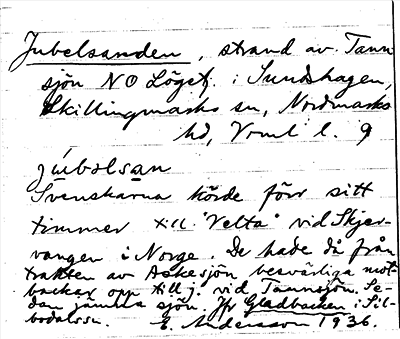 Jubelsanden, strand av Tann
sjön NO Löget. i Sundshagen,
Skillingmarks sn, Nordmarks
hd, Vrml l. 9
júbəlsan
Svenskarna körde förr sitt
timmer till "Velta" vid Skjer-
vangen i Norge. De hade då från
trakten av Askesjön besvärliga mot-
backar opp till j. vid Tannsjön. Se-
dan jämna sjön. Jfr Gladbacken i Sil-
bodalssn. E. Andersson 1936.